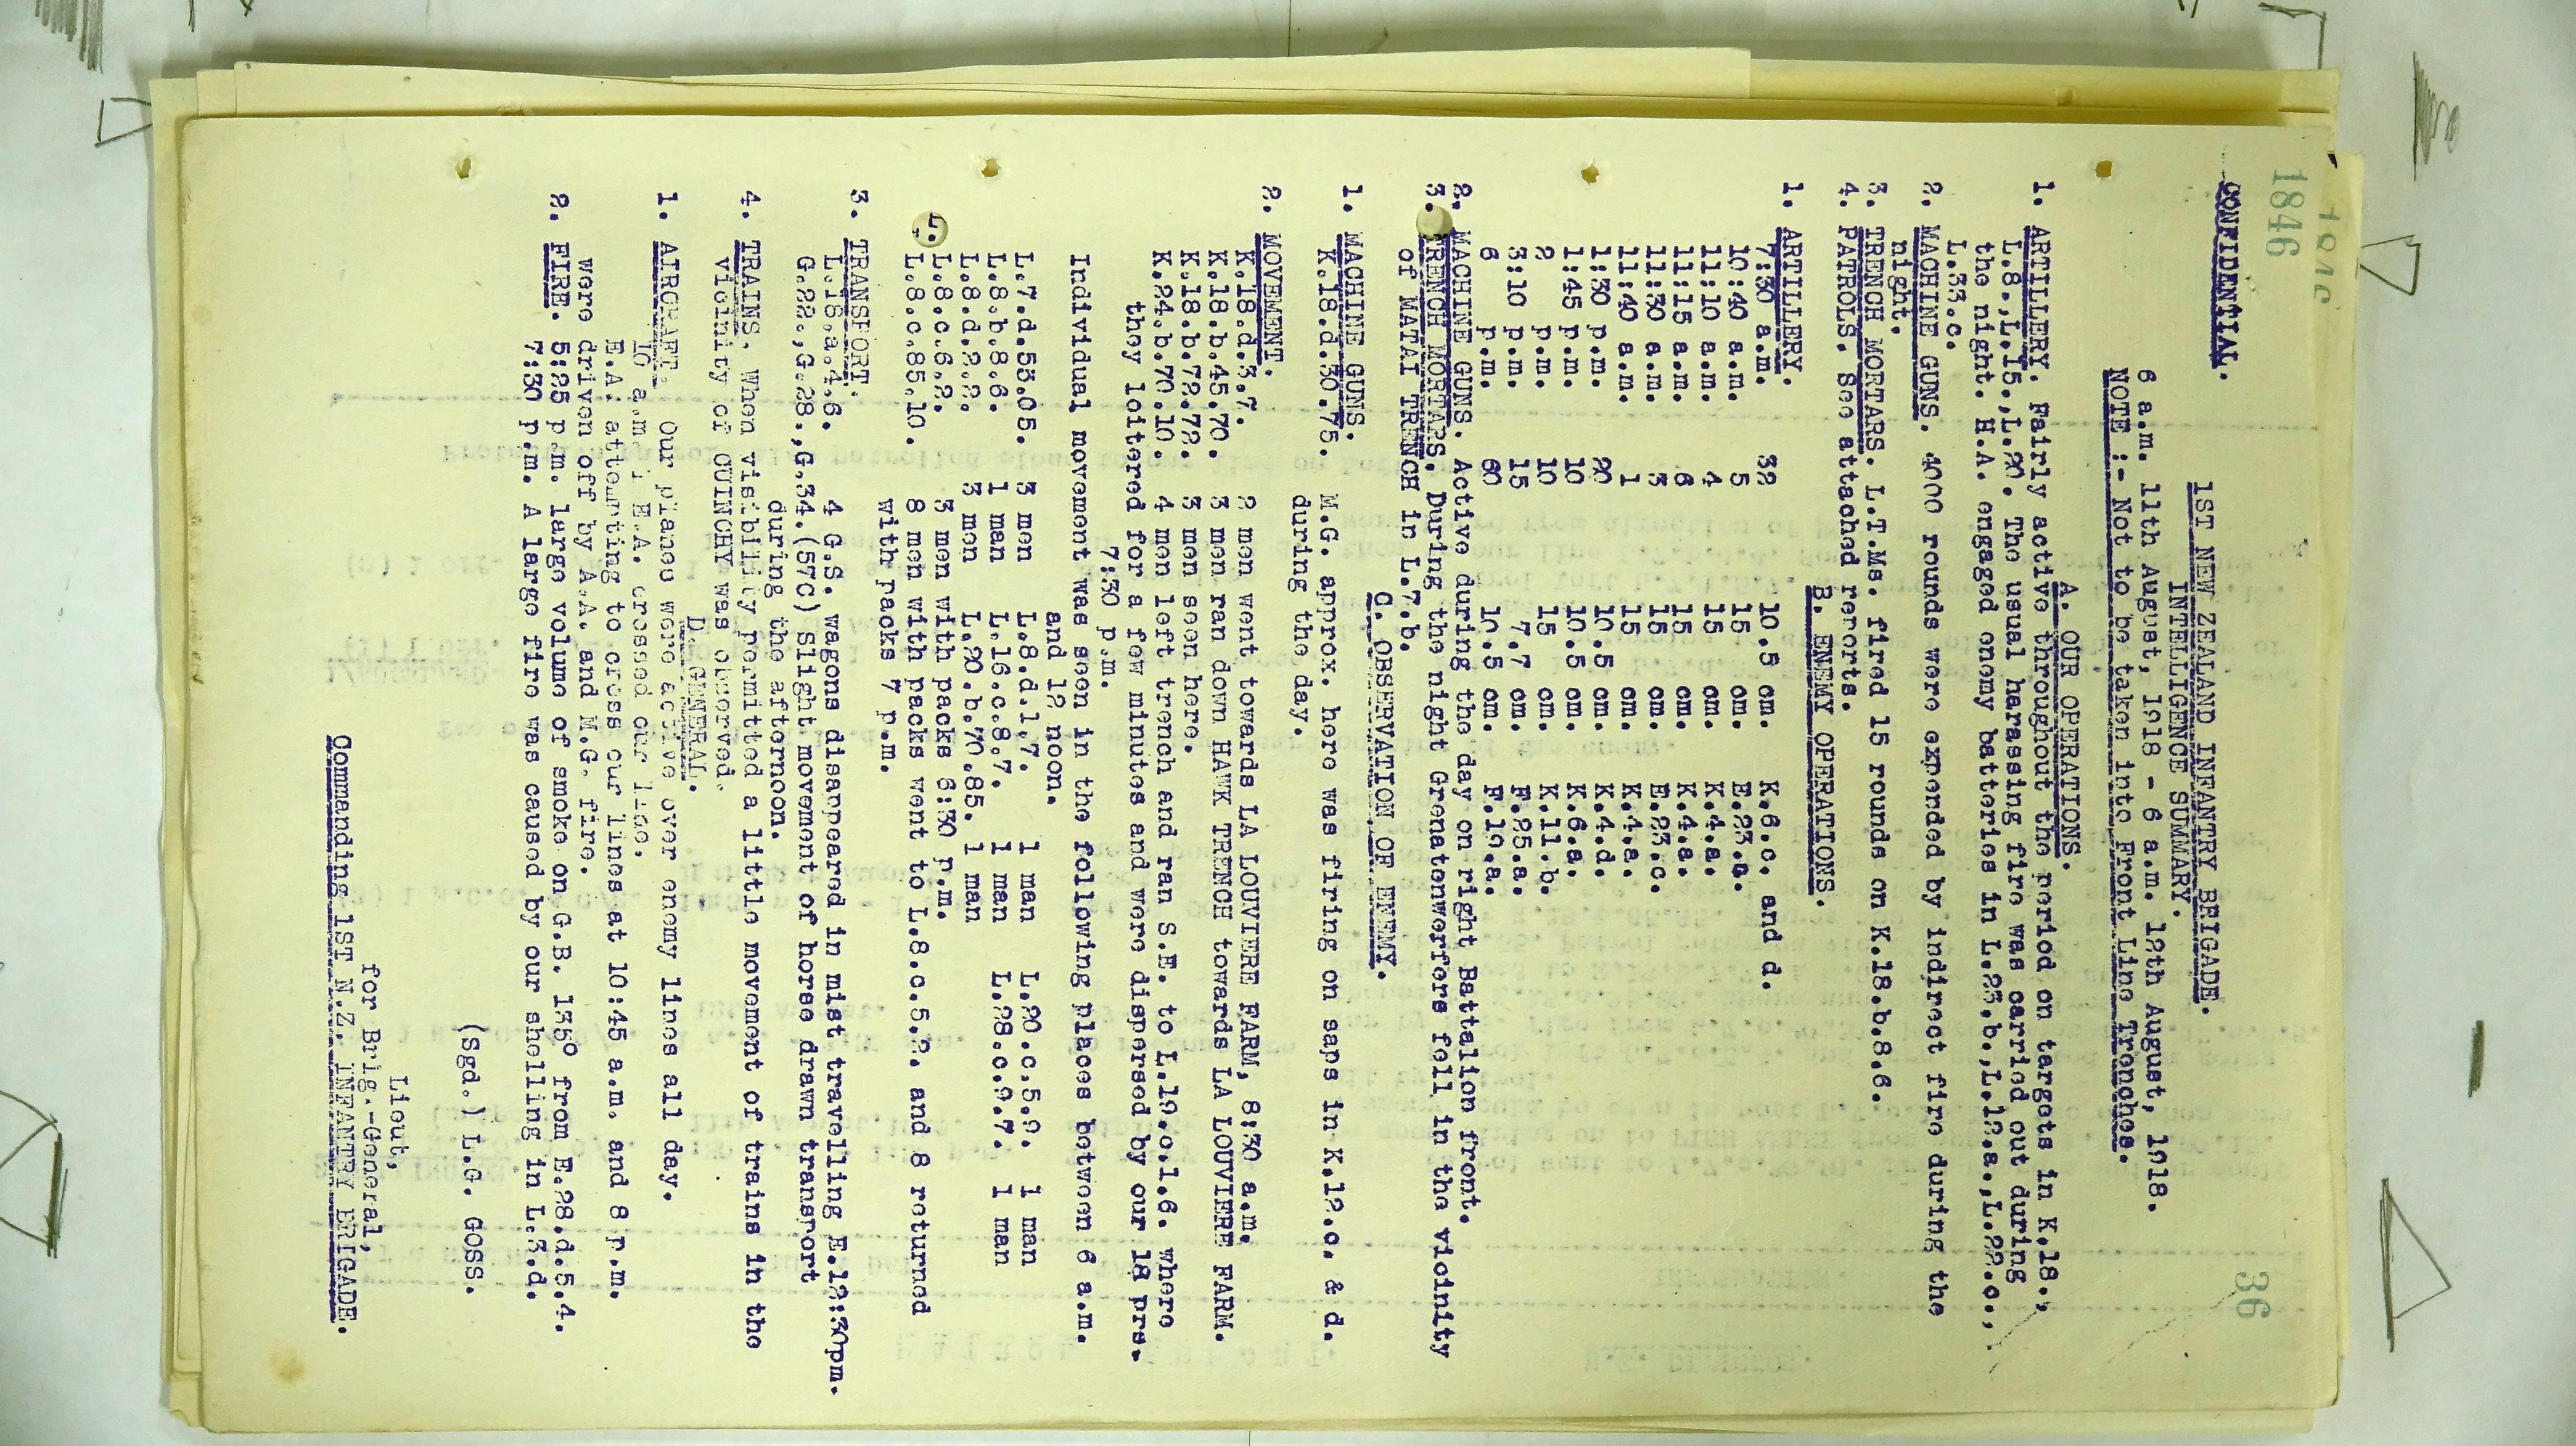 1846
1846
36
CONFIDENTIAL.
1ST NEW ZEALAND INFANTRY BRIGADE.
INTELLIGENCE SUMMARY.
6 a.m. 11th August, 1918 - 6 a.m. 12th August, 1918.
NOTE :- Not to be taken into Front Line Trenches.
A. OUR OPERATIONS.
1. ARTILLERY. Fairly active throughout the period on targets in K.18.,
L.8.,L.15.,L.20. The usual harassing fire was carried out during
the night. H.A. engaged enemy batteries in L.23.b.,L.12.a.,L.22.c.,
L.33.c.
2. MACHINE GUNS. 4000 rounds were expended by indirect fire during the
night.
3. TRENCH MORTARS. L.T.Ms. fired 15 rounds on K.18.b.8.6.
4. PATROLS. See attached reports.
B. ENEMY OPERATIONS.
1. ARTILLERY.
7:30 a.m. 32 10.5 cm. K.6.c. and d.
10:40 a.m. 5 15 cm. E.23.c.
11:10 a.m. 4 15 cm. K.4.a.
11:15 a.m. 6 15 cm. K.4.a.
11:30 a.m. 3 15 cm. E.23.c.
11:40 a.m. 1 15 cm. K.4.a.
1:30 p.m. 20 10.5 cm. K.4.d.
1:45 p.m. 10 10.5 cm. K.6.a.
2 p.m. 10 15 cm. K.11.b.
3:10 p.m. 15 7.7 cm. F.25.a.
6 p.m. 60 10.5 cm. F.19.a.
2. MACHINE GUNS. Active during the day on right Battalion front.
3. TRENCH MORTARS. During the night Grenatenwerfers fell in the vicinity
of MATAI TRENCH in L.7.b.
C. OBSERVATION OF ENEMY.
1. MACHINE GUNS.
K.18.d.30.75. M.G. approx. here was firing on saps in K.12.c. & d.
during the day.
2. MOVEMENT.
K.18.d.3.7. 2 men went towards LA LOUVIERE FARM, 8:30 a.m.
K.18.b.45.70. 3 men ran down HAWK TRENCH towards LA LOUVIERE FARM.
K.18.b.72.72. 3 men seen here.
K.24.b.70.10. 4 men left trench and ran S.E. to L.19.c.1.6. where
they loitered for a few minutes and were dispersed by our 18 prs.
7:30 p.m.
Individual movement was seen in the following places between 6 a.m.
and 12 noon.
L.7.d.53.05. 3 men L.8.d.1.7. 1 man L.20.c.5.9. 1 man
L.8.b.8.6. 1 man L.16.c.8.7. 1 man L.28.c.9.7. 1 man
L.8.d.2.2. 3 men L.20.b.70.85. 1 man
L.8.c.6.2. 3 men with packs 6:30 p.m.
L.8.c.85.10. 8 men with packs went to L.8.c.5.2. and 8 returned
with packs 7 p.m.
3. TRANSPORT.
L.18.a.4.6. 4 G.S. wagons disappeared in mist travelling E.12:30pm.
G.22.,G.28.,G.34.(57C) Slight movement of horse drawn transport
during the afternoon.
4. TRAINS. When visibility permitted a little movement of trains in the
vicinity of QUINCHY was observed.
D. GENERAL.
1. AIRCRAFT. Our planes were active over enemy lines all day.
10 a.m. 1 E.A. crossed our line.
E.A. attempting to cross our lines at 10:45 a.m. and 8 p.m.
were driven off by A.A. and M.G. fire.
2. FIRE. 5:25 p.m. large volume of smoke on G.B. 135° from E.28.d.5.4.
7:30 p.m. A large fire was caused by our shelling in L.3.d.
(Sgd.) L.G. GOSS.
Lieut,
for Brig.-General,
Commanding 1ST N.Z. INFANTRY BRIGADE.